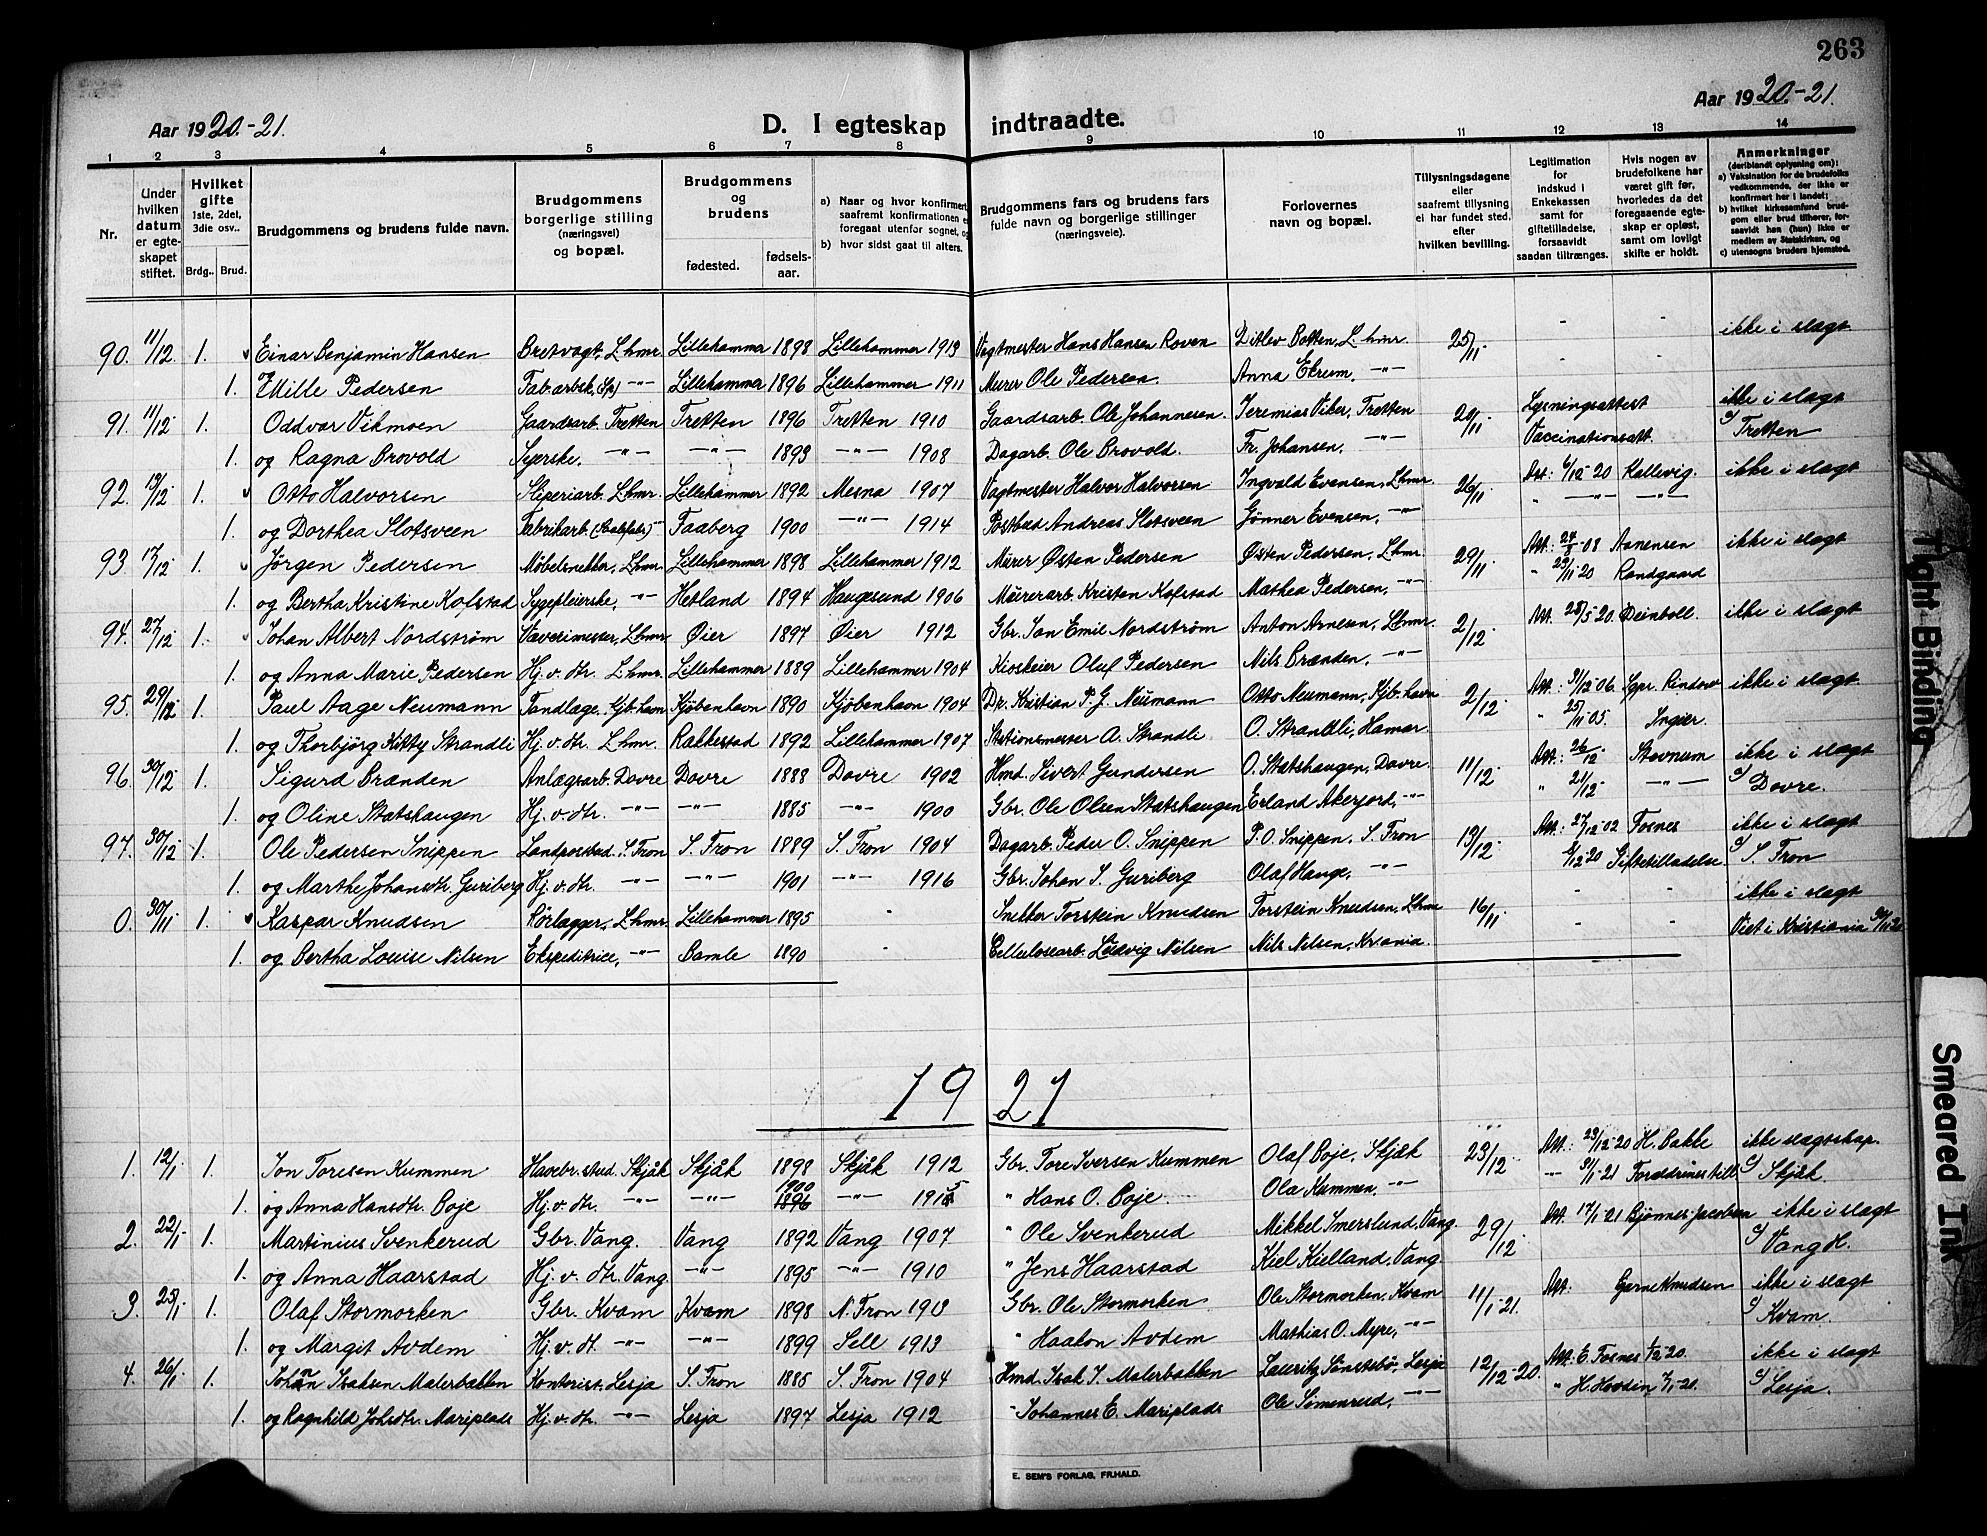 263
Aar 1920.-21.
D. I egteskap indtraadte.
Aar 1920.-21.
1 2 3 4 5 6 7 8 9 10 11 12 13 14
Nr.
Under hvilken datum er egteskapet stiftet.
Hvilket gifte 1ste, 2det, 3die osv..
Brdg.. Brud.
Brudgommens og brudens fulde navn.
Brudgommens borgerlige stilling (næringsvei) og bopæl.
Brudgommens og brudens
fødested. fødselsaar.
a) Naar og hvor konfirmert saafremt konfirmationen er foregaat utenfor sognet, og
b) hvor sidst gaat til alters.
Brudgommens fars og brudens fars fulde navn og borgerlige stillinger (næringsveie).
Forlovernes navn og bopæl.
Tillysningsdagene eller saafremt tillysning ei har fundet sted. efter hvilken bevilling.
Legitimation for indskud i Enkekassen samt for giftetilladelse, forsaavidt saadan tiltrænges.
Hvis nogen av brudefolkene har været gift før, hvorledes da det foregaaende egteskap er opløst, samt om lovligt skifte er holdt.
Anmerkninger (deriblandt oplysning om):
a) Vaksination for de brudefolks vedkommende, der ikke er konfirmert her i landet;
b) hvilket kirkesamfund brudgom eller brud tilhører, forsaavidt han (hun) ikke er medlem av Statskirken, og
c) utensogns bruders hjemsted.
90. 11/12. 1. Einar Benjamin Hansen Bretvagt, L.hmr. Lillehammer 1898 Lillehammer 1913 Vagtmester Hans Hansen Roven Ditlev Botten, L.hmr. 25/11. - - ikke i slægt
1. og Mille Pedersen Fab.arbsk. (Sp) -"- Lillehammer 1896 Lillehammer 1911 Murer Ole Pedersen. Anna Ekrum, -"- - -
91. 11/12 1. Oddvar Vikmoen Gaardsarb. Tretten Tretten 1896 Tretten 1910 Gaardsarb. Ole Johannesen. Jeremias Viker, Tretten 21/11 Lysningsattest ikke i slægt
1. og Ragna Brovold Syerske, -"- -"- 1893 -"- 1908 Dagarb. Ole Brovold. Fr. Johansen, -"- Vaccinationsatt. c/ Tretten
92. 19/12 1. Otto Halvorsen Sliperiarb. L.hmr. Lillehammer 1892 Mesna 1907 Vagtmester Halvor Halvorsen Ingvald Evensen, L.hmr. 26/11 Att: 4/12-20 Kallevig ikke i slægt
1. og Dorthea Slotsveen Fabrikarb. -"- Faaberg 1900 -"- 1914 Postbud Andreas Slotsveen Gønner Evensen, -"- " -"- -"-
93. 17/12 1. Jørgen Pedersen Møbelsnekker, L.hmr. Lillehammer 1898 Lillehammer 1912 Murer Østen Pedersen Østen Pedersen, L.hmr. 29/11 Att: 24/8-08 Aanensen ikke i slægt
1. og Bertha Kristine Kofstad Sygepleierske, -"- Hetland 1894 Haugesund 1906 Murerarb. Kristen Kofstad Mathea Pedersen, -"- " 23/11-20 Randgaard
94. 27/12 1. Johan Albert Nordstrøm Væverimester, L.hmr. Øier 1897 Øier 1912 Gbr. Jon Emil Nordstrøm Anton Arnesen, L.hmr. 2/12. Att. 28/5-20. Deinboll. ikke i slægt
1. og Anna Marie Pedersen Hj.v.dtr. L.hmr. Lillehammer 1889 Lillehammer 1904 Kioskeier Oluf Pedersen Nils Brænden, -"-
95. 29/12 1. Paul Aage Neumann Tandlæge. Kjb.havn Kjøbenhavn 1890 Kjøbenhavn 1904 Dr. Kristian P. G. Neumann Otto Neumann, Kjb.havn 2/12. Att: 31/12-06. Sgpr. ikke i slægt
1. og Thorbjørg Kitty Strandli Hj.v.dtr. L.hmr. Rakkestad 1892 Lillehammer 1907 Stationsmester A. Strandli O. Strandli, Hamar. " 25/11-05. Ingier.
96. 30/12 1. Sigurd Brænden Anlægsarb. Dovre Dovre 1888 Dovre 1902 Hmd. Sivert Gundersen O. Statshaugen, Dovre. 11/12. Att: 26/12 Stovnum ikke i slægt
1. og Oline Statshaugen Hj.v.dtr. -"- -"- 1885 -"- 1900 Gbr. Ole Olsen Statshaugen Erland Akerjord, -"- " 21/12- -"- c/ Dovre.
97. 30/12 1. Ole Pedersen Snippen Landpostbud. S. Fron S. Fron 1889 S. Fron 1904 Dagarb. Peder O. Snippen P. O. Snippen, S. Fron 19/12. Att: 27/12-02 Fosnes ikke i slægt
1. og Marthe Johansdtr. Guriberg Hj.v.dtr. -"- -"- 1901 -"- 1916 Gbr. Johan S. Guriberg Olaf Hauge, -"- 2/12-20 Giftetilladelse c/ S. Fron
0. 30/11 1. Kaspar Knudsen Rørlægger, L.hmr. Lillehammer 1895 - Snekker Torstein Knudsen Torstein Knudsen, L.hmr 16/11. - - ikke i slægt
1. og Bertha Louise Nilsen Ekspeditrice, -"- Bamle 1890 - Cellulosearb. Ludvig Nilsen Nils Nilsen, Kr.ania. - - Viet i Kristiania 30/11 20
1921
1. 12/1 1. Jon Toresen Kummen Havebr.stud. Skjåk Skjåk 1898 Skjåk 1912 Gbr. Tore Iversen Kummen Olaf Boje, Skjåk 23/12. Att: 23/12-20 H. Bakke ikke slægtskap.
1. og Anna Hansdtr. Boje Hj.v.dtr. -"- -"- 1900 1896 -"- 1915 " Hans O. Boje. Ola Kummen, -"- -"- 31/1-21 c/ Skjåk.
2. 22/1 1. Martinius Svenkerud Gbr. Vang. Vang 1892 Vang 1907 " Ole Svenkerud Mikkel Smerslund, Vang. 29/12. Att. 17/1-21 Bjønnes-Jacobsen ikke i slægt
1. og Anna Haarstad Hj.v.dtr. Vang. -"- 1895 -"- 1910 " Jens Haarstad Kiel Kielland, Vang. c/ Vang H.
3. 25/1 1. Olaf Stormorken Gbr. Kvam Kvam 1898 N. Fron 1913 Gbr. Ole Stormorken Ole Stormorken, Kvam 11/1-21. Att: Gerne Knudsen ikke i slægt
1. og Margit Avdem Hj.v.dt. -"- -"- 1899 Sell 1913 " Haakon Avdem Mathias O. Myre, -"- c/ Kvam.
4. 26/1 1. Johan Isaksen Malerbakken Kontorist, Lesja S. Fron 1885 S. Fron 1904 Hmd. Isak I. Malerbakken Lauritz Sønstebø, Lesja 12/12-20. Att. E. Fosnes 1/12-20. ikke i slægt
1. og Ragnhild Johsdtr. Mariplads Hj.v.dtr. -"- Lesja 1897 Lesja 1912 " Johannes E. Mariplads Ole Sømenrud, -"- " H. Hovdin 7/1-20. c/ Lesja.
E. SEM'S FORLAG, FR.HALD.
Tight Binding
Smeared Ink